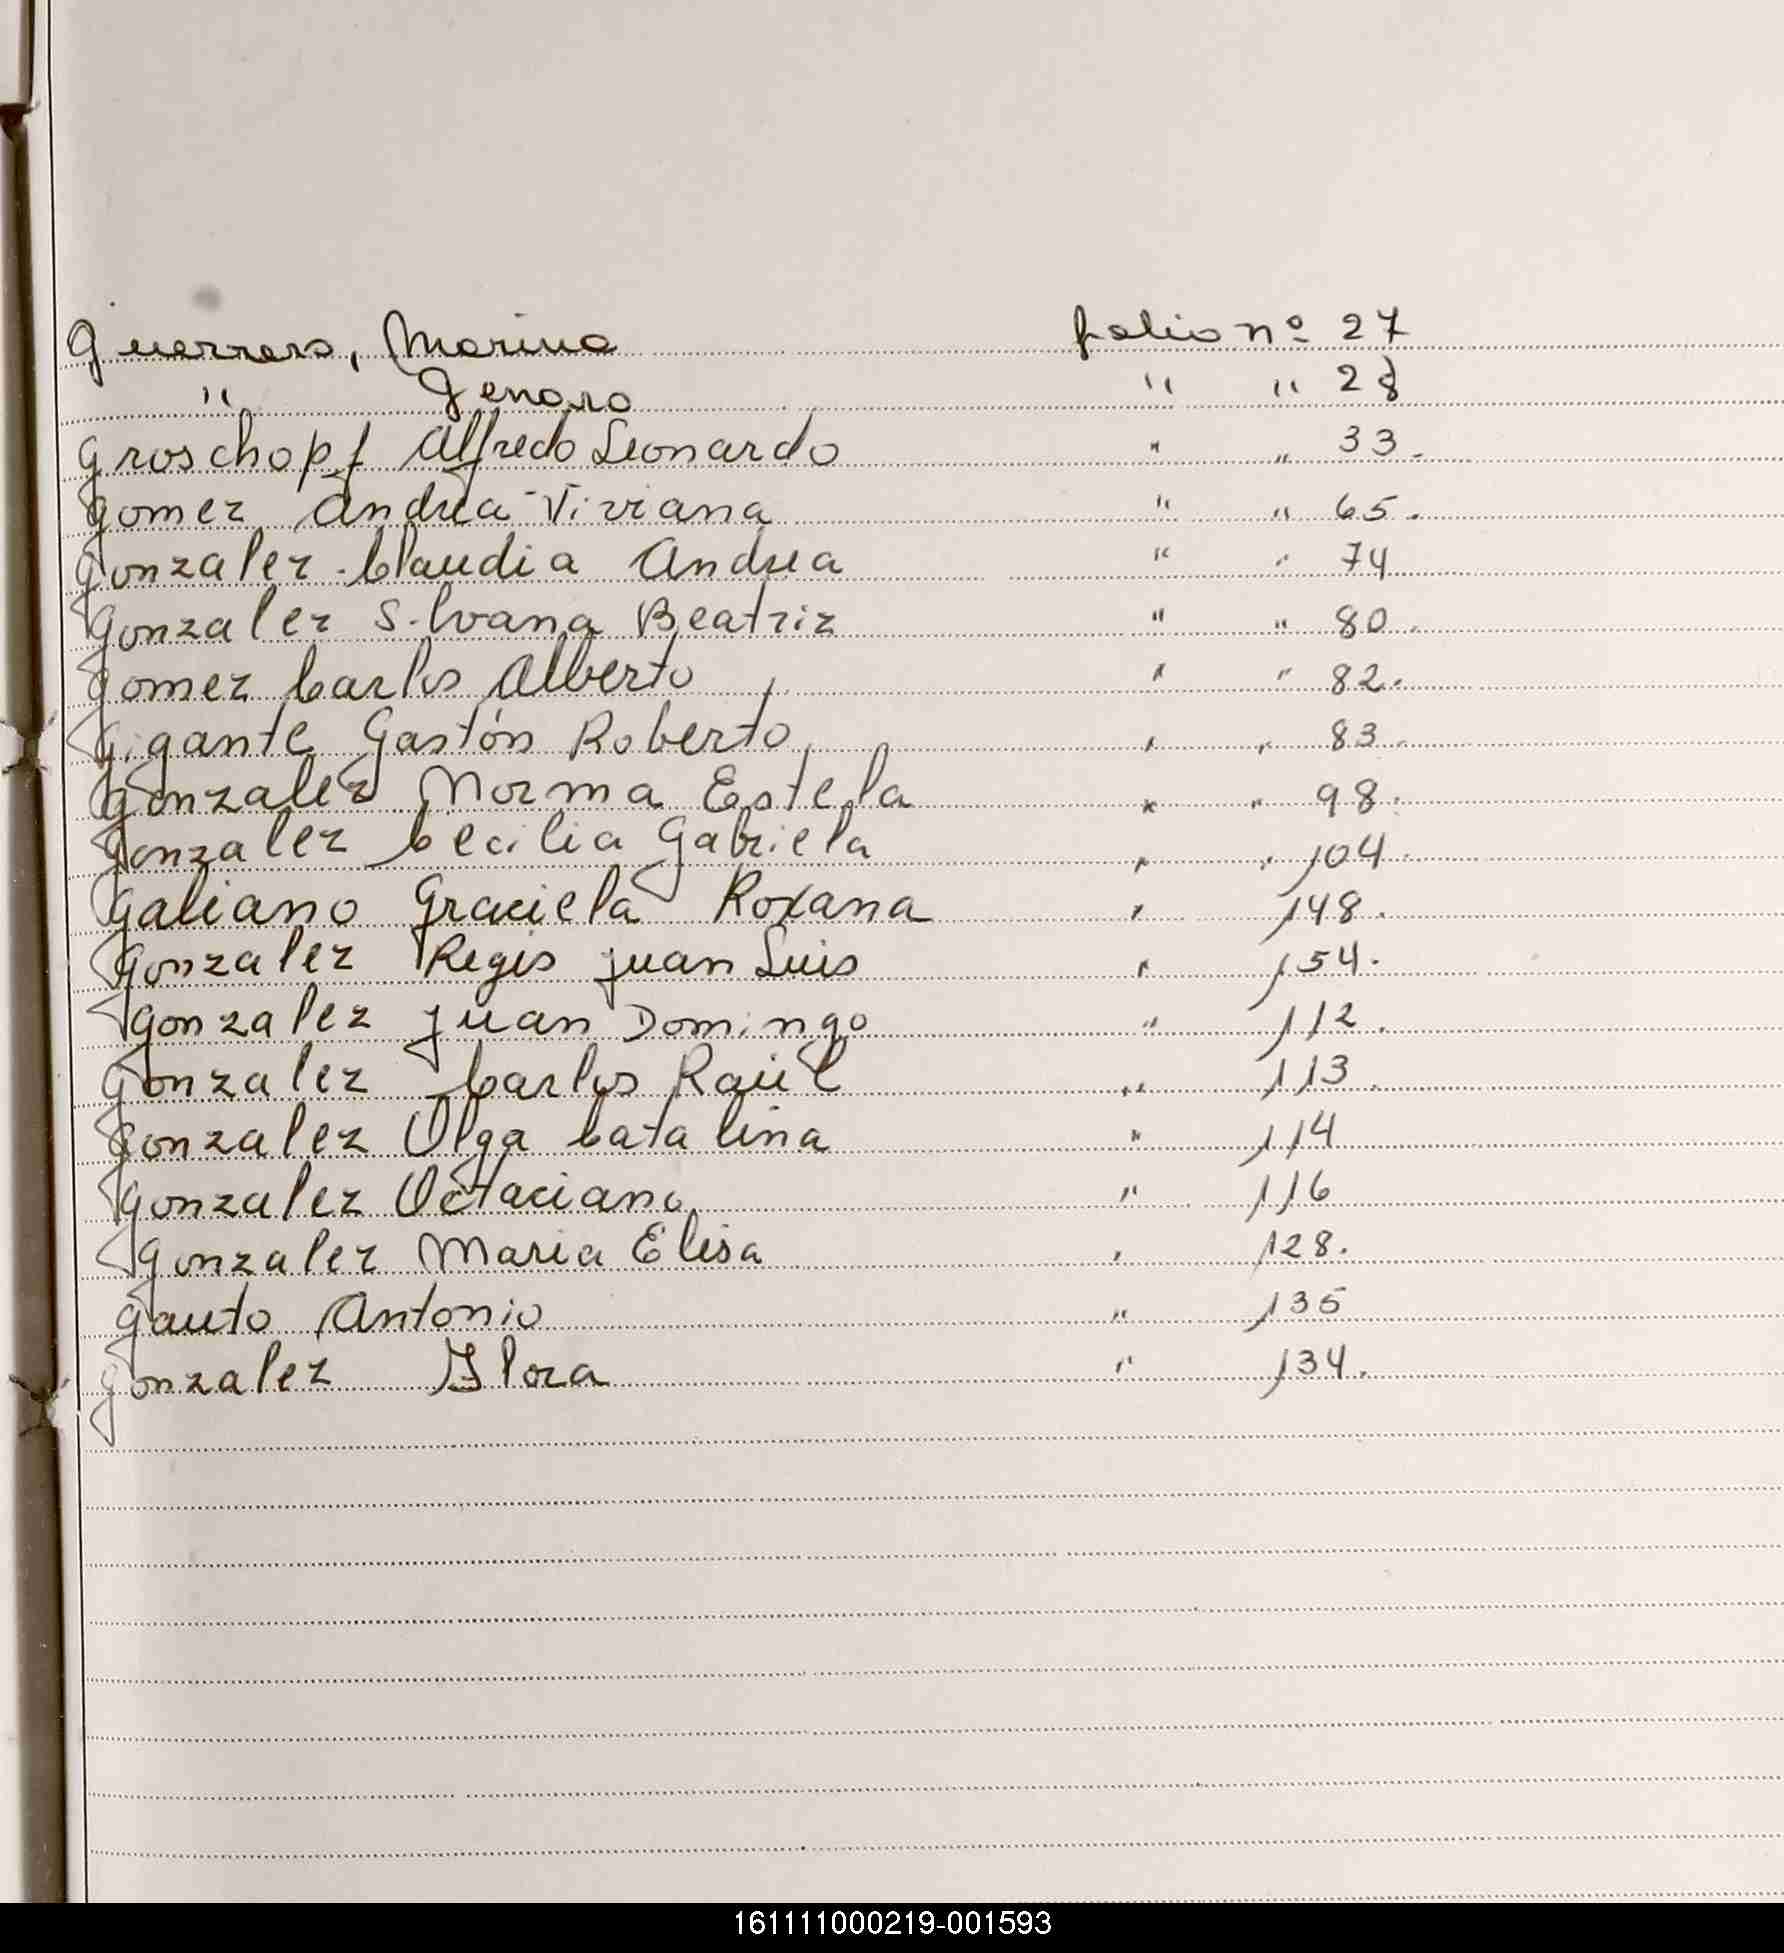 Guerrero, Marina folio nº 27
" Genaro " " 28
Groschopf Alfredo Leonardo " " 33.
Gomez Andrea Viviana " " 65.
Gonzalez Claudia Andrea " " 74
Gonzalez Silvana Beatriz " " 80.
Gomez Carlos Alberto " " 82.
Gigante Gastón Roberto " " 83.
Gonzalez Norma Estela " " 98.
Gonzalez Cecilia Gabriela " " 104.
Galiano Graciela Roxana " 148.
Gonzalez Regis Juan Luis " 154.
Gonzalez Juan Domingo " 112.
Gonzalez Carlos Raúl " 113.
Gonzalez Olga Catalina " 114
Gonzalez Octaciano " 116
Gonzalez Maria Elisa " 128.
Gauto Antonio " 135
Gonzalez Flora " 134.
161111000219-001593